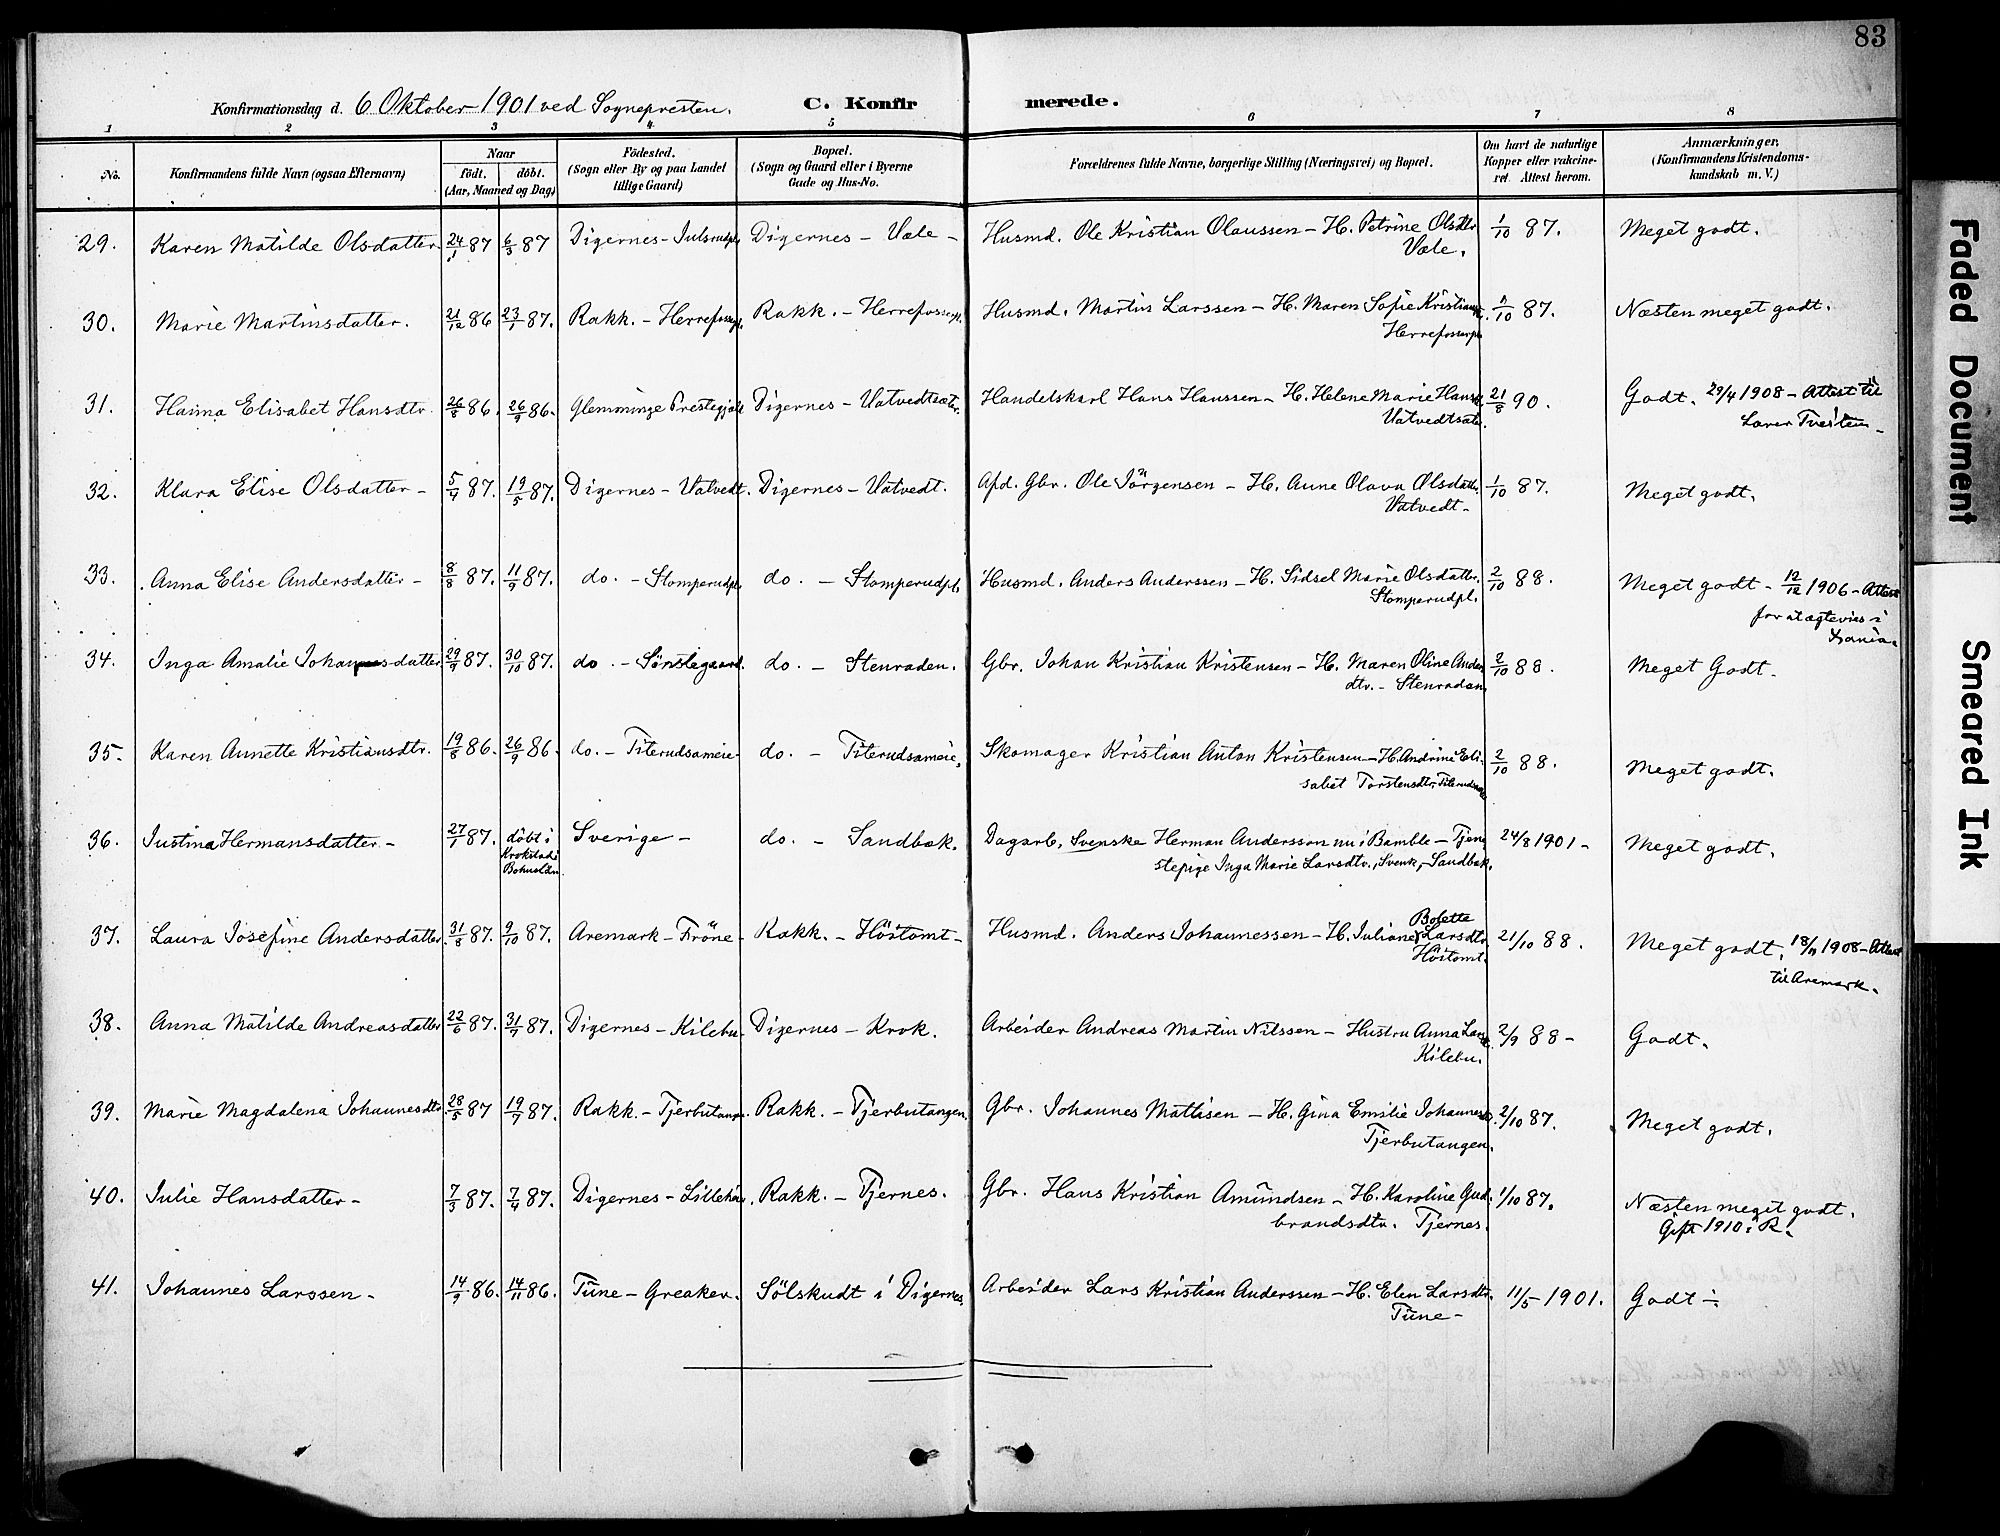 83
Konfirmationsdag d. 6 Oktober 1901 ved Sognepresten. C. Konfirmerede.
1 2 3 4 5 6 7 8
No. Konfirmandens fulde Navn (ogsaa Efternavn) Naar født. døbt. (Aar, Maaned og Dag) Fødested. (Sogn eller By og paa Landet tillige Gaard) Bopæl. (Sogn og Gaard eller i Byerne Gade og Hus-No. Forældrenes fulde Navne, borgerlige Stilling (Næringsvei) og Bopæl. Om havt de naturlige Kopper eller vakcineret. Attest herom. Anmærkninger, (Konfirmandens Kristendomskundskab m. V.)
29. Karen Matilde Olsdatter 24/1 87 6/3 87 Digernes - Julsrudpl. Digernes - Væle - Husmd. Ole Kristian Olaussen - H. Petrine Olsdtr. 1/10 87. Meget godt.
Væle.
30. Marie Martinsdatter. 21/12 86 23/1 87. Rakk. - Herrefosspl. Rakk. - Herrefosspl. Husmd. Martin Larssen - H. Maren Sofie 1/10 87. Næsten meget godt.
31. Elisabet Hansdtr. 26/8 86. 26/9 86. Glemminge Prestegjæld Digernes - Handelskarl Hans Hanssen - H. Helene Marie 21/8 90. Godt. 29/4 1908 - Attest til
32. Klara Elise Olsdatter - 5/4 87. 19/5 87. Digernes - Vatvedt. Digernes - Vatvedt. Gbr. Ole Jörgensen - H. Anne Olava Olsdatter. 1/10 87. Meget godt.
Vatvedt -
33. Anna Elise Andersdatter - 8/8 87. 11/9 87. do. - Stomperudpl. do. - Stomperudpl. Husmd. Anders Anderssen - H. Sidsel Marie Olsdatter. 2/10 88. Meget godt - 12/12 1906 - Attest
Stomperudpl. for at ægtevies i
34. Inga Amalie 29/9 87. 30/10 87. do. - Sönstegaard. do. - Stenraden. Gbr. Johan Kristian Kristensen - H. Maren Oline Anders 2/10 88. Meget Godt -
dtr. - Stenraden
35. Karen Annette Kristiansdtr. 19/8 86. 26/9 86. do. - Titerudsameie - do. - Titerudsameie. Skomager Kristian Anton Kristensen - H. Andrine Eli- 2/10 88. Meget godt.
sabet Torstensdtr.
36. Justina Hermansdatter - 27/1 87. döbt i Sverige - do. - Sandbæk. Dagarb. Svenske Herman Andersson nu i Bamble - Tjene 24/8 1901 - Meget godt.
Bohuslän stepige Inga Marie Larsdtr., Svensk, - Sandbæk.
37. Laura Josefine Andersdatter. 31/8 87. 9/10 87. Aremark - Fröne - Rakk. - Höstomt - Husmd. Anders Johannessen - H. Juliane Bolette Larsdtr. 21/10 88. Meget godt. 1908 - Attest
Höstomt. til Aremark.
38. Anna Matilde Andreasdatter 22/6 87. 31/7 87. Digernes - Kilebu - Digernes - Krok. Arbeider Andreas Martin Nilssen - Hustru Anna 2/9 88 - Godt.
Kilebu.
39. Marie Magdalena Johannesdtr. 28/5 87 19/7 87. Rakk. - Tjerbutangen. Rakk. - Tjerbutangen. Gbr. Johannes Mattisen - H. Gina Emilie 2/10 87. Meget godt.
Tjerbutangen.
40. Julie Hansdatter - 7/3 87. 7/4 87. Digernes - Rakk. - Tjernes. Gbr. Hans Kristian Amundsen - H. Karoline Gud- 1/10 87. Næsten meget godt.
brandsdtr. Tjernes. Gift 1910 i R.
41. Johannes Larssen - 14/9 86. 14/11 86. Tune - Greaker. Sölskudt i Digernes. Arbeider Lars Kristian Anderssen - H. Elen Larsdtr. 11/5 - 1901. Godt ÷
Tune -
Faded Document
Smeared Ink